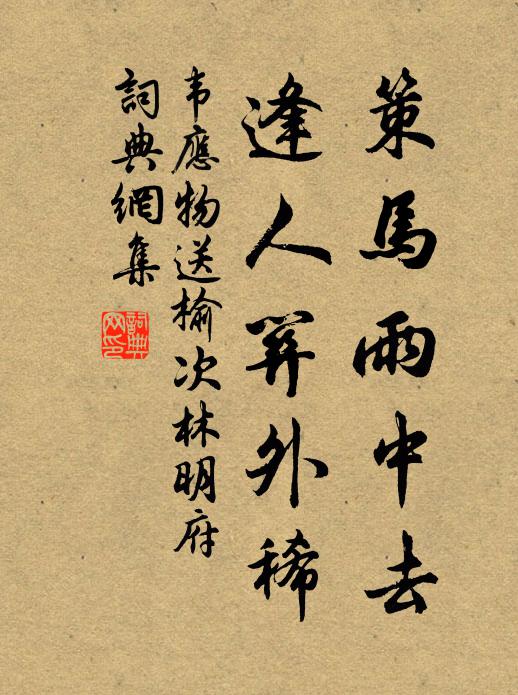 策馬雨中去
逢人關外稀
韦應物送榆次林明府
詞典網集
詞典
网印